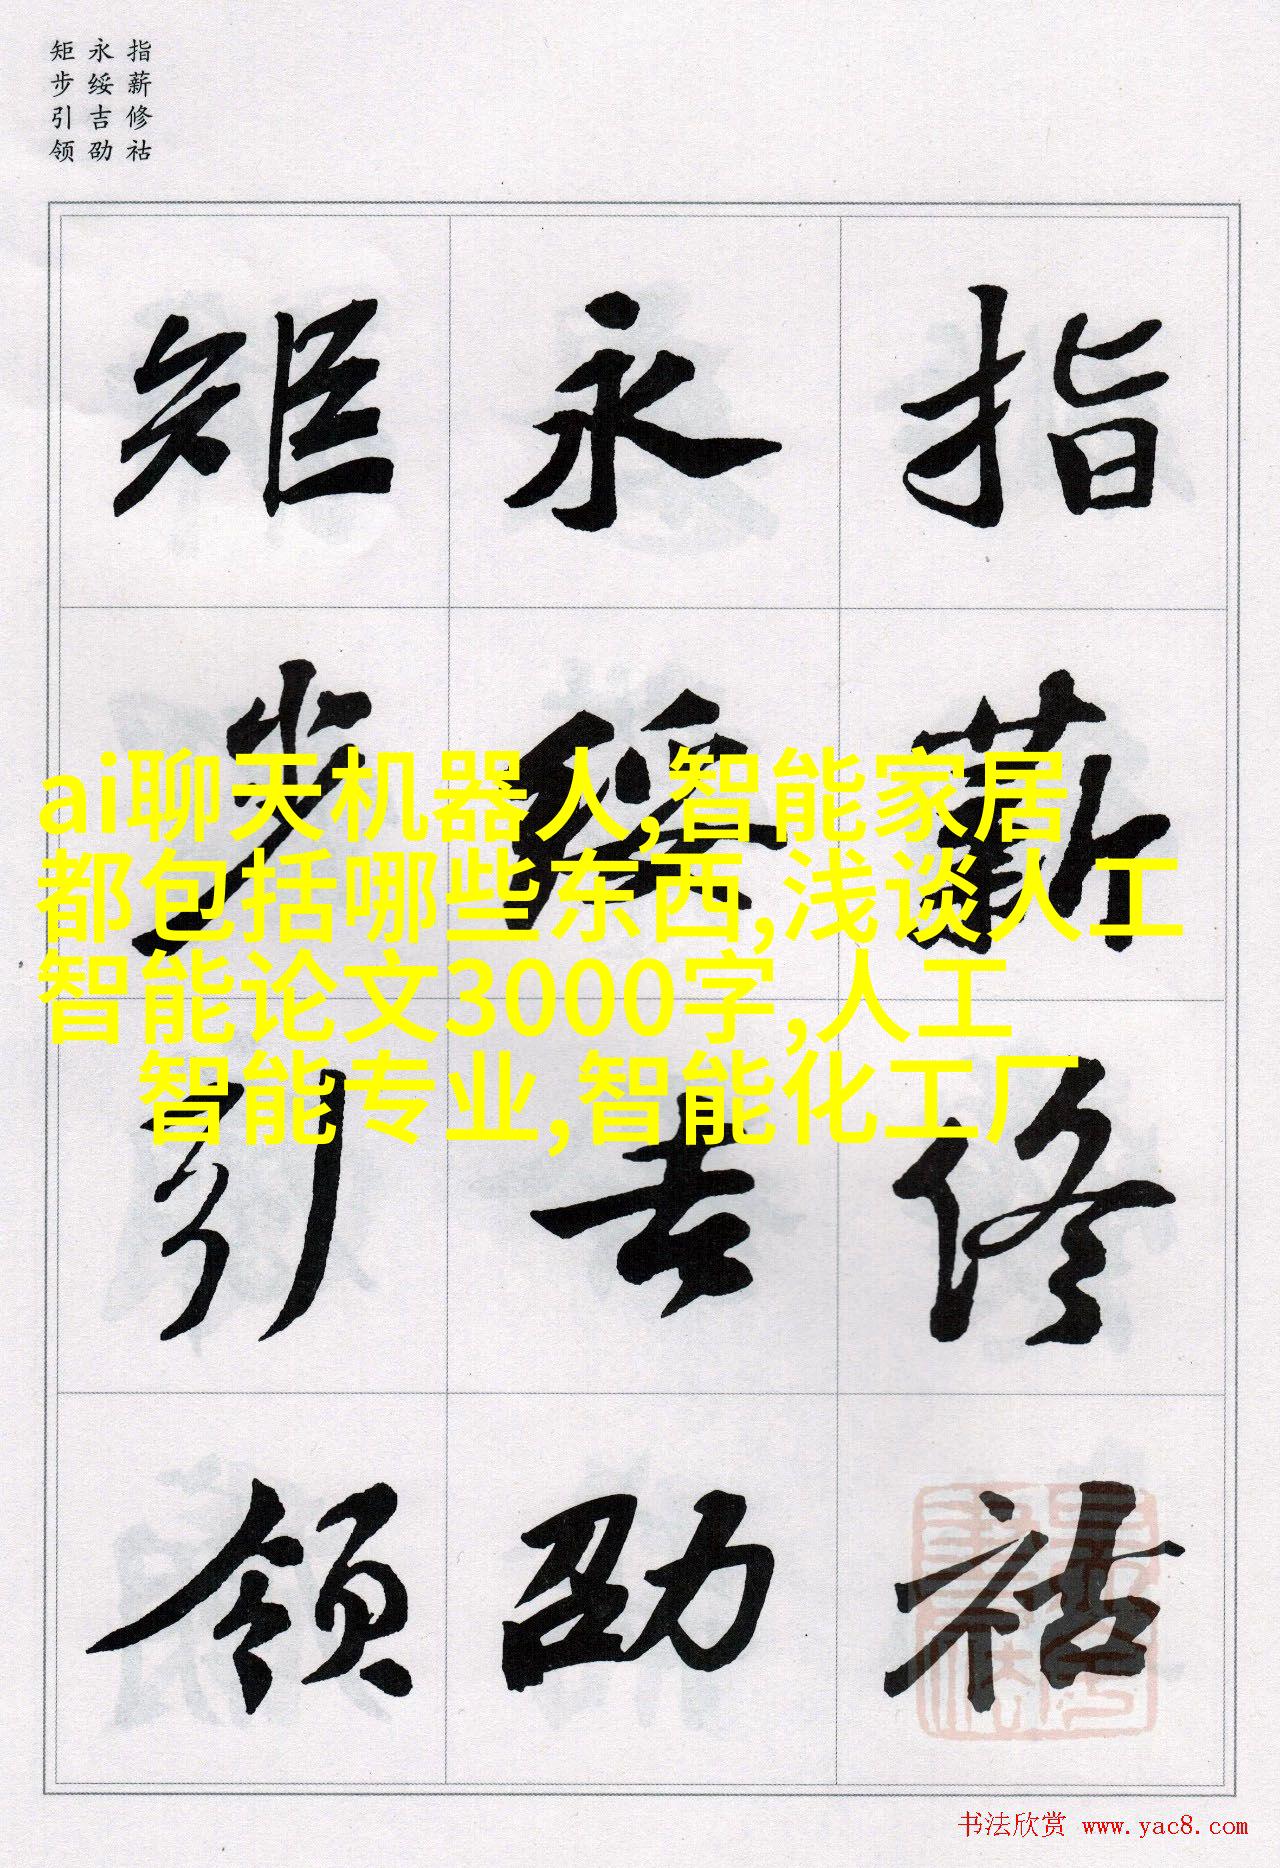 指薪修祜
永绥吉劭
矩步引领
指薪修祜
永绥吉劭
矩步引领
ai聊天机器人,智能家居
都包括哪些东西,浅谈人工
智能论文3000字,人工
智能专业,智能化工厂
书法欣赏 www.yac8.com